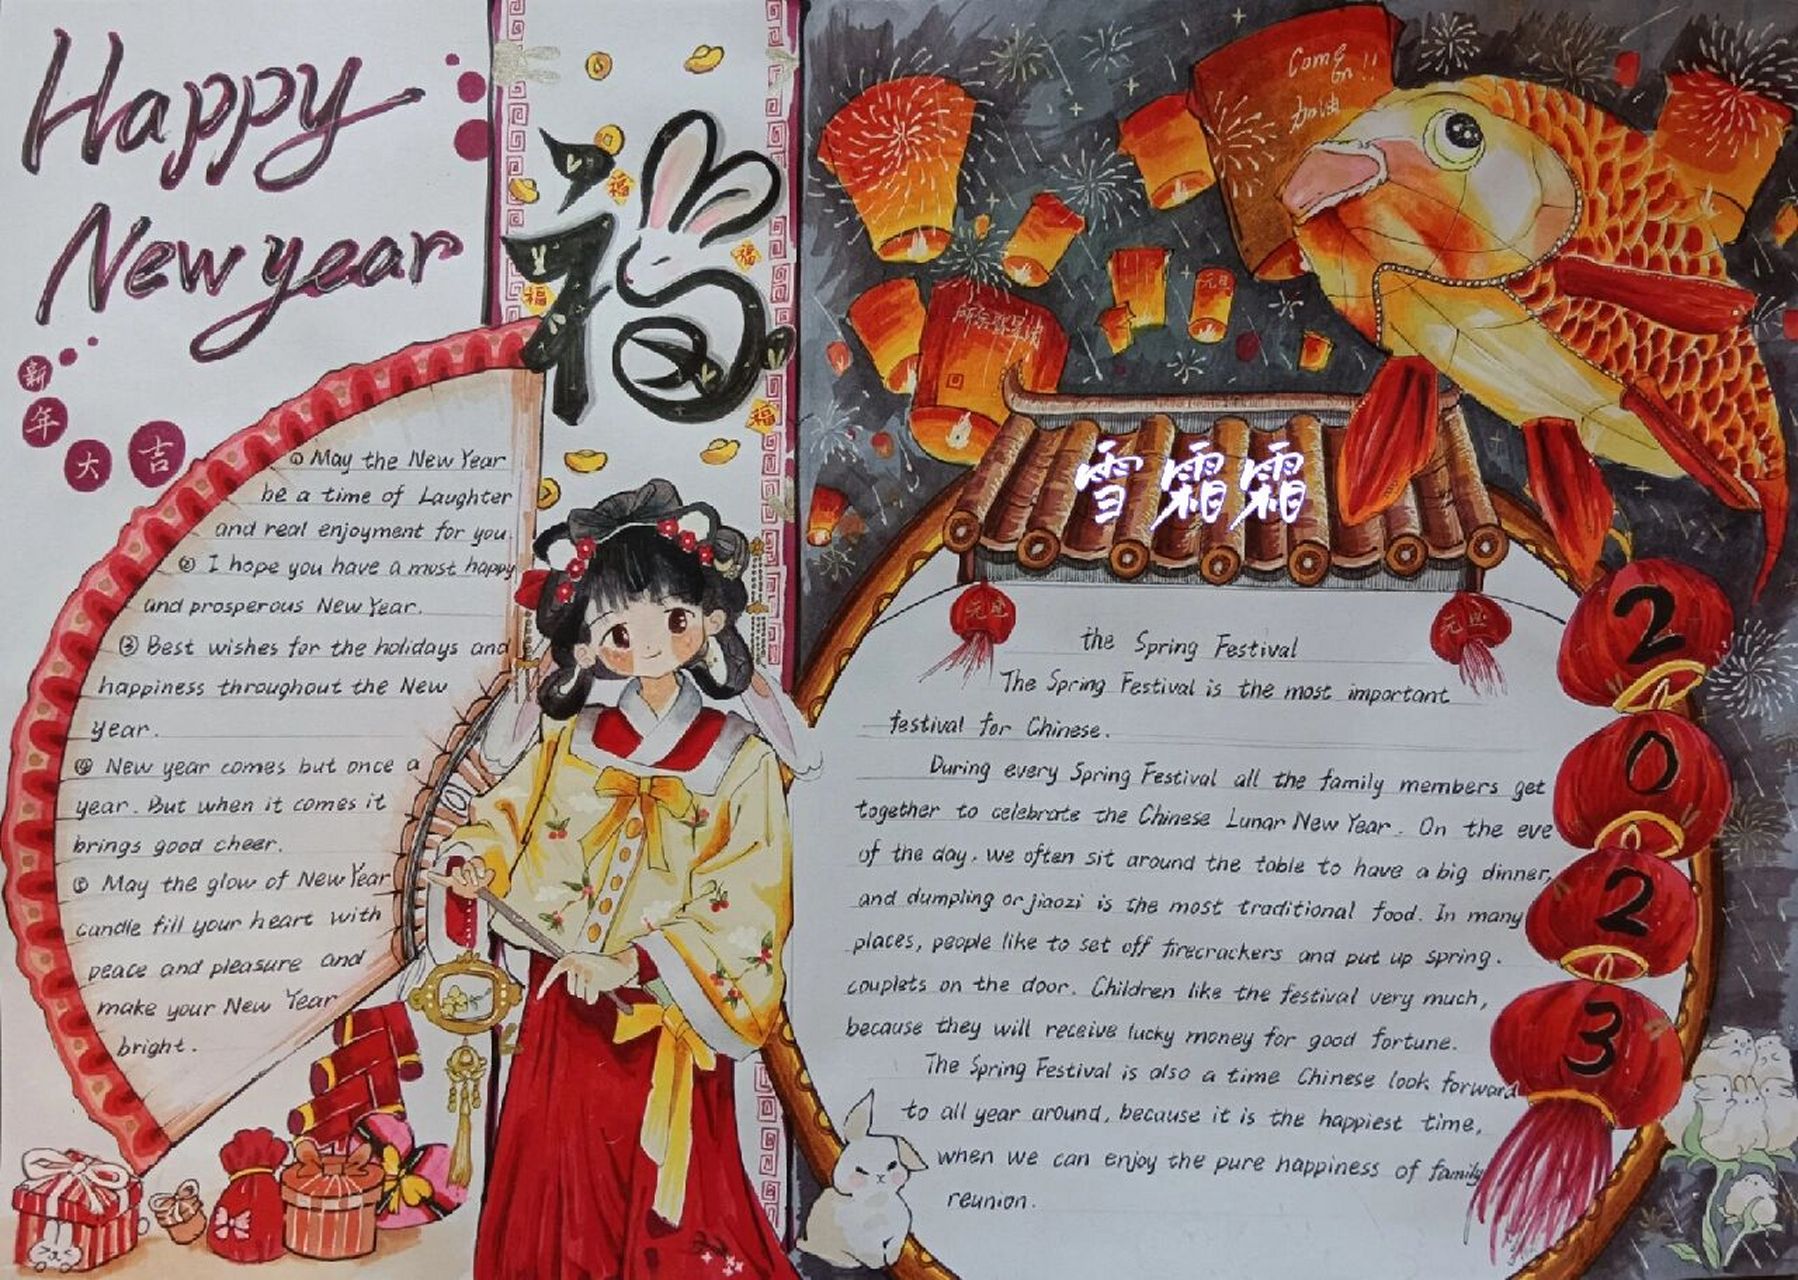 Happy
New year
新
年
大
吉
福
福
福
福
福
① May the New Year
be a time of Laughter
and real enjoyment for you.
② I hope you have a most happy
and prosperous New Year.
③ Best wishes for the holidays and
happiness throughout the New
year.
④ New year comes but once a
year. But when it comes it
brings good cheer.
⑤ May the glow of New Year
candle fill your heart with
peace and pleasure and
make your New Year
bright.
Come
on!!
加油
元旦
雪霜霜
元旦
元旦
the Spring Festival
The Spring Festival is the most important
festival for Chinese.
During every Spring Festival all the family members get
together to celebrate the Chinese Lunar New Year. On the eve
of the day. we often sit around the table to have a big dinner,
and dumpling or jiaozi is the most traditional food. In many
places, people like to set off firecrackers and put up spring.
couplets on the door. Children like the festival very much,
because they will receive lucky money for good fortune.
The Spring Festival is also a time Chinese look forward
to all year around, because it is the happiest time,
when we can enjoy the pure happiness of family
reunion.
2
0
2
3